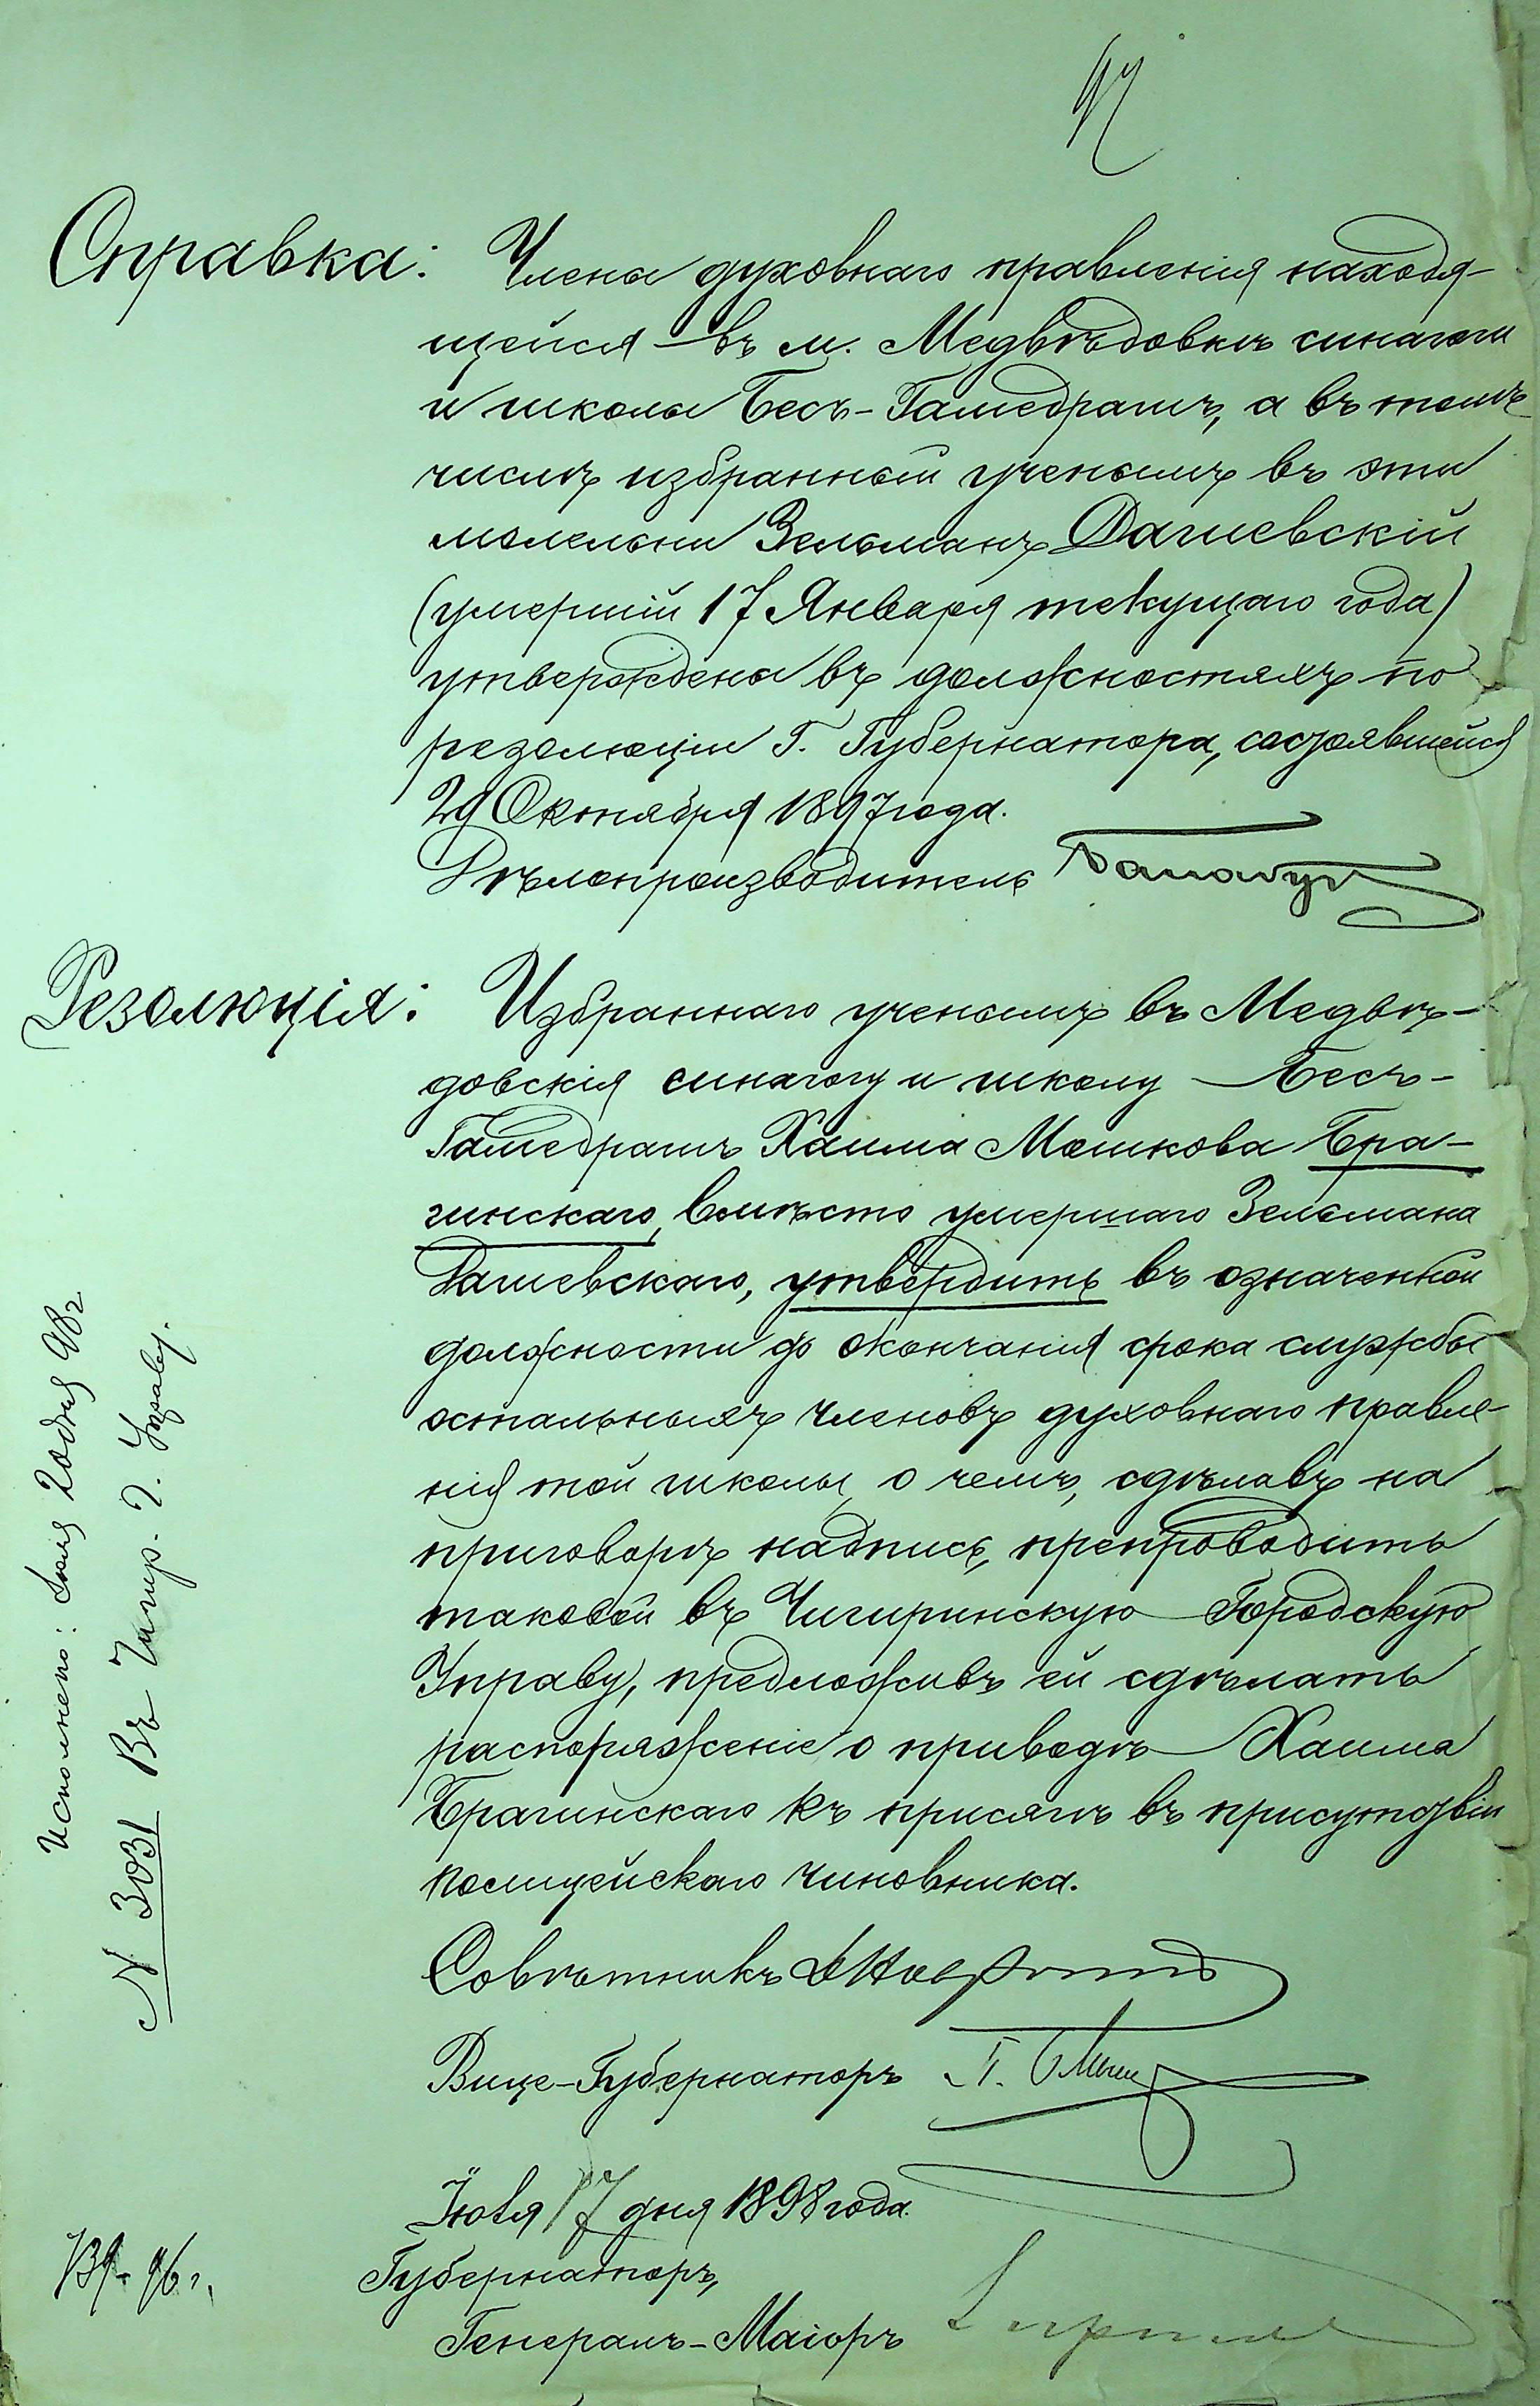 Справка: Члены духовнаго правленія находя-
щейся въ м. Медвѣдовкѣ синагоги
и школы Бесъ-Гамедрашъ, а въ томъ
числѣ избранный ученымъ въ эти
молельни Зельманъ Дашевскій
(умершій 17 Января текущаго года)
утверждены въ должностяхъ по
резолюціи Г. Губернатора, состоявшейся
29 Октября 1897 года.
Дѣлопроизводитель
Резолюція: Избраннаго ученымъ въ Медвѣ-
довскія синагогу и школу Бесъ-
Гамедрашъ Хаима Мошкова Бра-
гинскаго, вмѣсто умершаго Зельмана
Дашевскаго, утвердить въ означенной
должности до окончанія срока службы
остальныхъ членовъ духовнаго правле-
нія той школы, о чемъ, сдѣлавъ на
приговорѣ надпись, препроводить
таковой въ Чигиринскую Городскую
Управу, предложивъ ей сдѣлать
распоряженіе о приводѣ Хаима
Брагинскаго къ присягѣ въ присутствіи
полицейскаго чиновника.
Совѣтникъ
Вице-Губернаторъ
17 дня 1898 года.
Губернаторъ,
Генералъ-Маіоръ
Исполнено: Іюля 20 дня 98 г
№ 3031 Въ Чигир. Г. Управу.